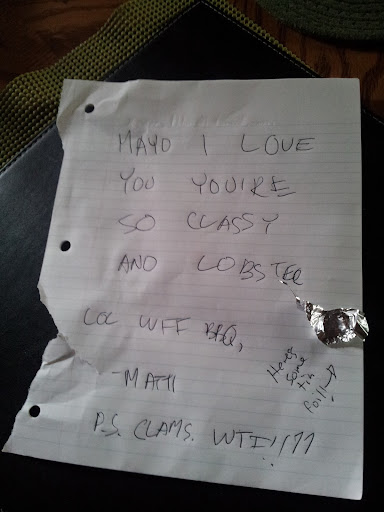 MAYO I LOVE
YOU YOU'RE
SO CLASSY
AND LOBSTER
LOL WTF BBQ,
-MATTI
Here's
some
tin
foil!
P.S. CLAMS. WTF!!!11